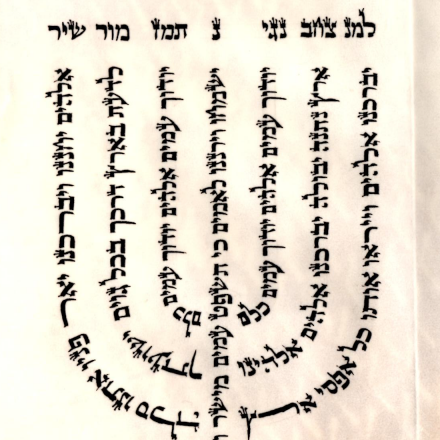 למנ צחב נגי נ תמז מור שיר
אלהים יחננו ויברכנו יאר פניו אתנו סלה
לדעת בארץ דרכך בכל גוים ישועתך
יודוך עמים אלהים יודוך עמים כלם
ישמחו וירננו לאמים כי תשפט עמים מישור
יודוך עמים אלהים יודוך עמים כלם
ארץ נתנה יבולה יברכנו אלהים אלהינו
יברכנו אלהים וייראו אותו כל אפסי ארץ